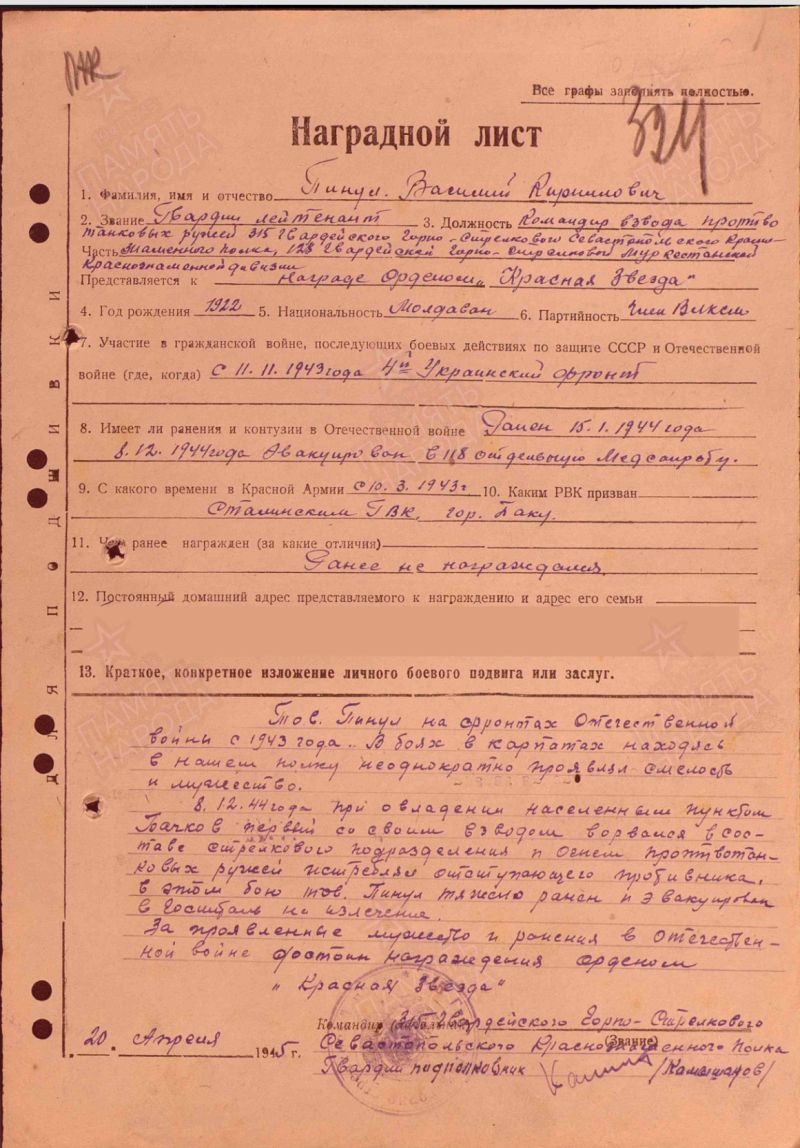 ПАМЯТЬ НАРОДА
Все графы заполнять полностью.
324
Наградной лист
1. Фамилия, имя и отчество Пинул Василий Кириллович
2. Звание Гвардии лейтенант 3. Должность Командир взвода противо
танковых ружей 315 Гвардейского Горно-Стрелкового Севастопольского Красно-
Часть знаменного полка, 128 Гвардейской Горно-стрелковой Туркестанской
Краснознаменной дивизии
Представляется к награде Орденом „Красная Звезда"
4. Год рождения 1922 5. Национальность Молдаван 6. Партийность Член ВЛКСМ
7. Участие в гражданской войне, последующих боевых действиях по защите СССР и Отечественной
войне (где, когда) с 11.11.1943 года 4й Украинский фронт
8. Имеет ли ранения и контузии в Отечественной войне Ранен 15.1.1944 года
8.12.1944 года Эвакуирован в 118 отдельную Медсанроту.
9. С какого времени в Красной Армии с 10.3.1943 г 10. Каким РВК призван
Сталинским ГВК, гор. Баку.
11. Чем ранее награжден (за какие отличия)
Ранее не награждался
12. Постоянный домашний адрес представляемого к награждению и адрес его семьи
13. Краткое, конкретное изложение личного боевого подвига или заслуг.
Тов. Пинул на фронтах Отечественной
войны с 1943 года. В боях в карпатах находясь
в нашем полку неоднократно проявлял смелость
и мужество.
8.12.44 года при овладении населенным пунктом
Бачков первый со своим взводом ворвался в сос-
таве стрелкового подразделения и огнем противотан-
ковых ружей истреблял отступающего противника,
в этом бою тов. Пинул тяжело ранен и эвакуирован
в госпиталь на излечение.
За проявленные мужество и ранения в отечествен-
ной войне достоин награждения орденом
„Красная Звезда"
Командир 315 Гвардейского Горно-Стрелкового
(Звание)
20. Апреля 1945 г. Севастопольского Краснознаменного полка
Гвардии подполковник
ДЛЯ ПОДШИВКИ